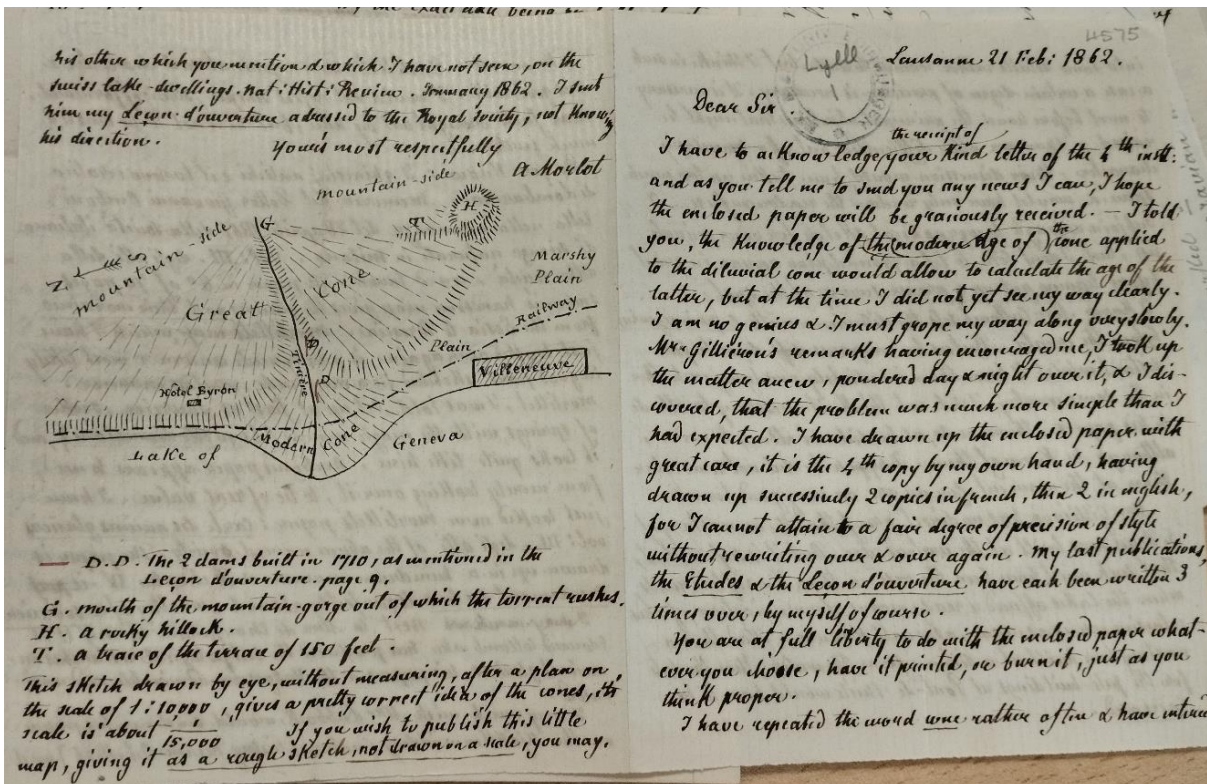 his other which you mention & which I have not seen, on the
swiss lake-dwellings. Nat: Hist: Review. January 1862. I sent
him my Leçon d'ouverture adressed to the Royal Society, not knowing
his direction. Your's most respectfully
A Morlot
mountain-side
H
T
G
mountain-side
N
S
Marshy
Plain
Cone
Great
Railway
Plain
Tinière
D
D
Villeneuve
Hôtel Byron
Modern Cone
Geneva
Lake of
D.D. The 2 dams built in 1710, as mentioned in the
Leçon d'ouverture. page 9.
G. mouth of the mountain-gorge out of which the torrent rushes.
H. a rocky hillock.
T. a trace of the terrace of 150 feet.
This sketch drawn by eye, without measuring, after a plan on
the scale of 1:10,000, gives a pretty correct idea of the cones, its
scale is about 1/15,000 If you wish to publish this little
map, giving it as a rough sketch, not drawn on a scale, you may.
4575
Lyell
1
Lausanne 21 Feb: 1862.
Dear Sir
the receipt of
I have to acknowledge, your kind letter of the 4th instt:
and as you tell me to send you any news I can, I hope
the enclosed paper will be graciously received. — I told
you, the knowledge of the modern age of the cone applied
to the diluvial cone would allow to calculate the age of the
latter, but at the time I did not yet see my way clearly.
I am no genius & I must grope my way along very slowly.
Mr Gilliéron's remarks having encouraged me, I took up
the matter anew, pondered day & night over it, & I dis-
covered, that the problem was much more simple than I
had expected. I have drawn up the enclosed paper with
great care, it is the 4th copy by my own hand, having
drawn up successively 2 copies in french, then 2 in english,
for I cannot attain to a fair degree of precision of style
without rewriting over & over again. My last publications,
the Etudes & the Leçon d'ouverture have each been written 3
times over, by myself of course.
You are at full liberty to do with the enclosed paper what-
ever you choose, have it printed, or burn it, just as you
think proper.
I have repeated the word cone rather often & have